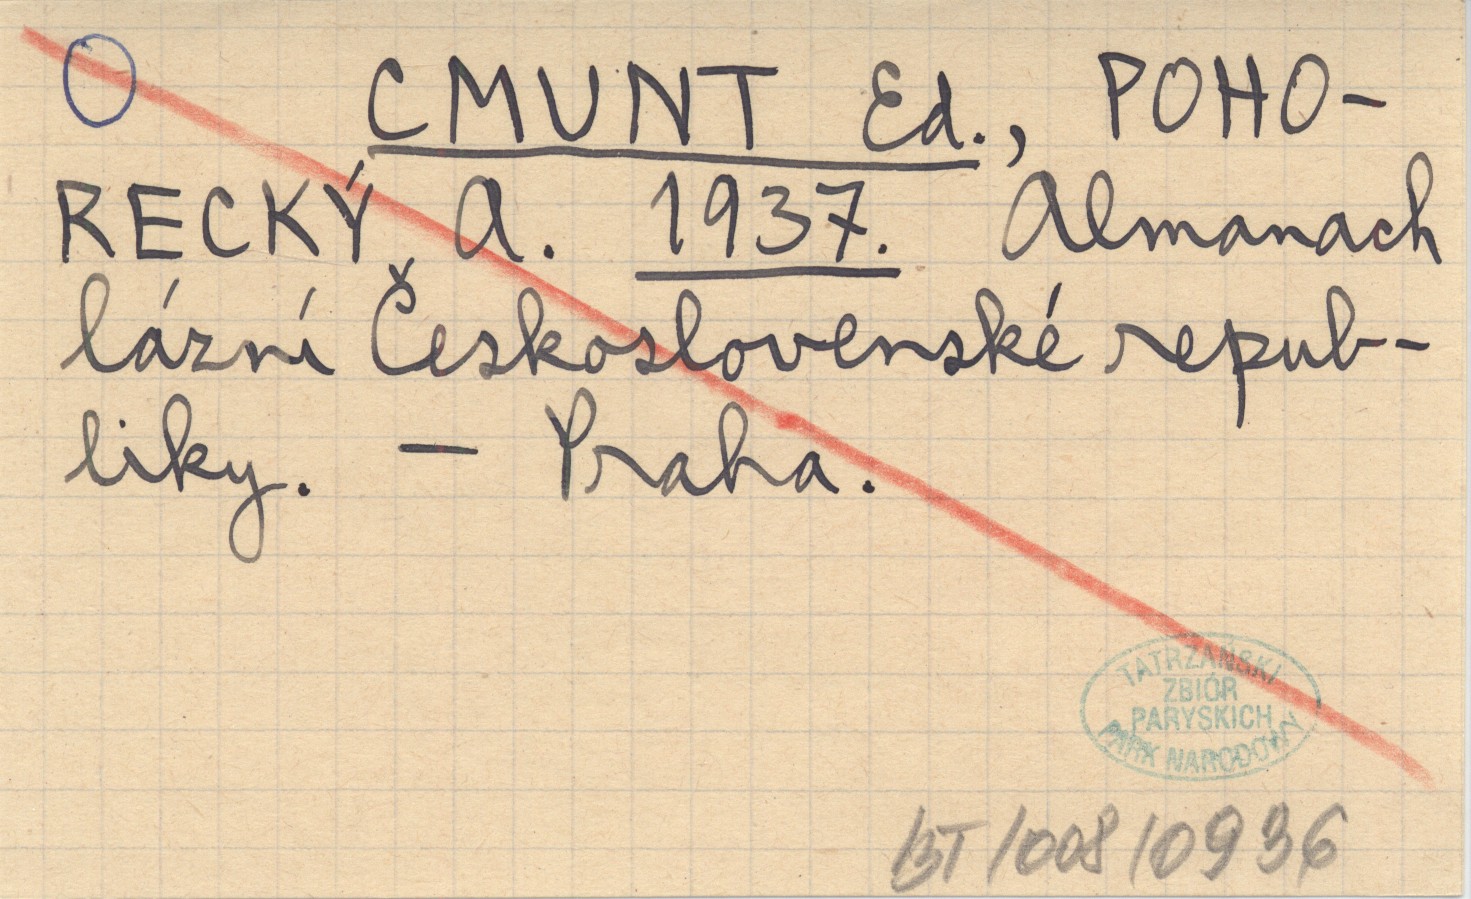 CMUNT Ed., POHO-
RECKÝ A. 1937. Almanach
lázní Československé repub-
liky. — Praha.
TATRZAŃSKI
ZBIÓR
PARYSKICH
PARK NARODOWY
BT/008/0936